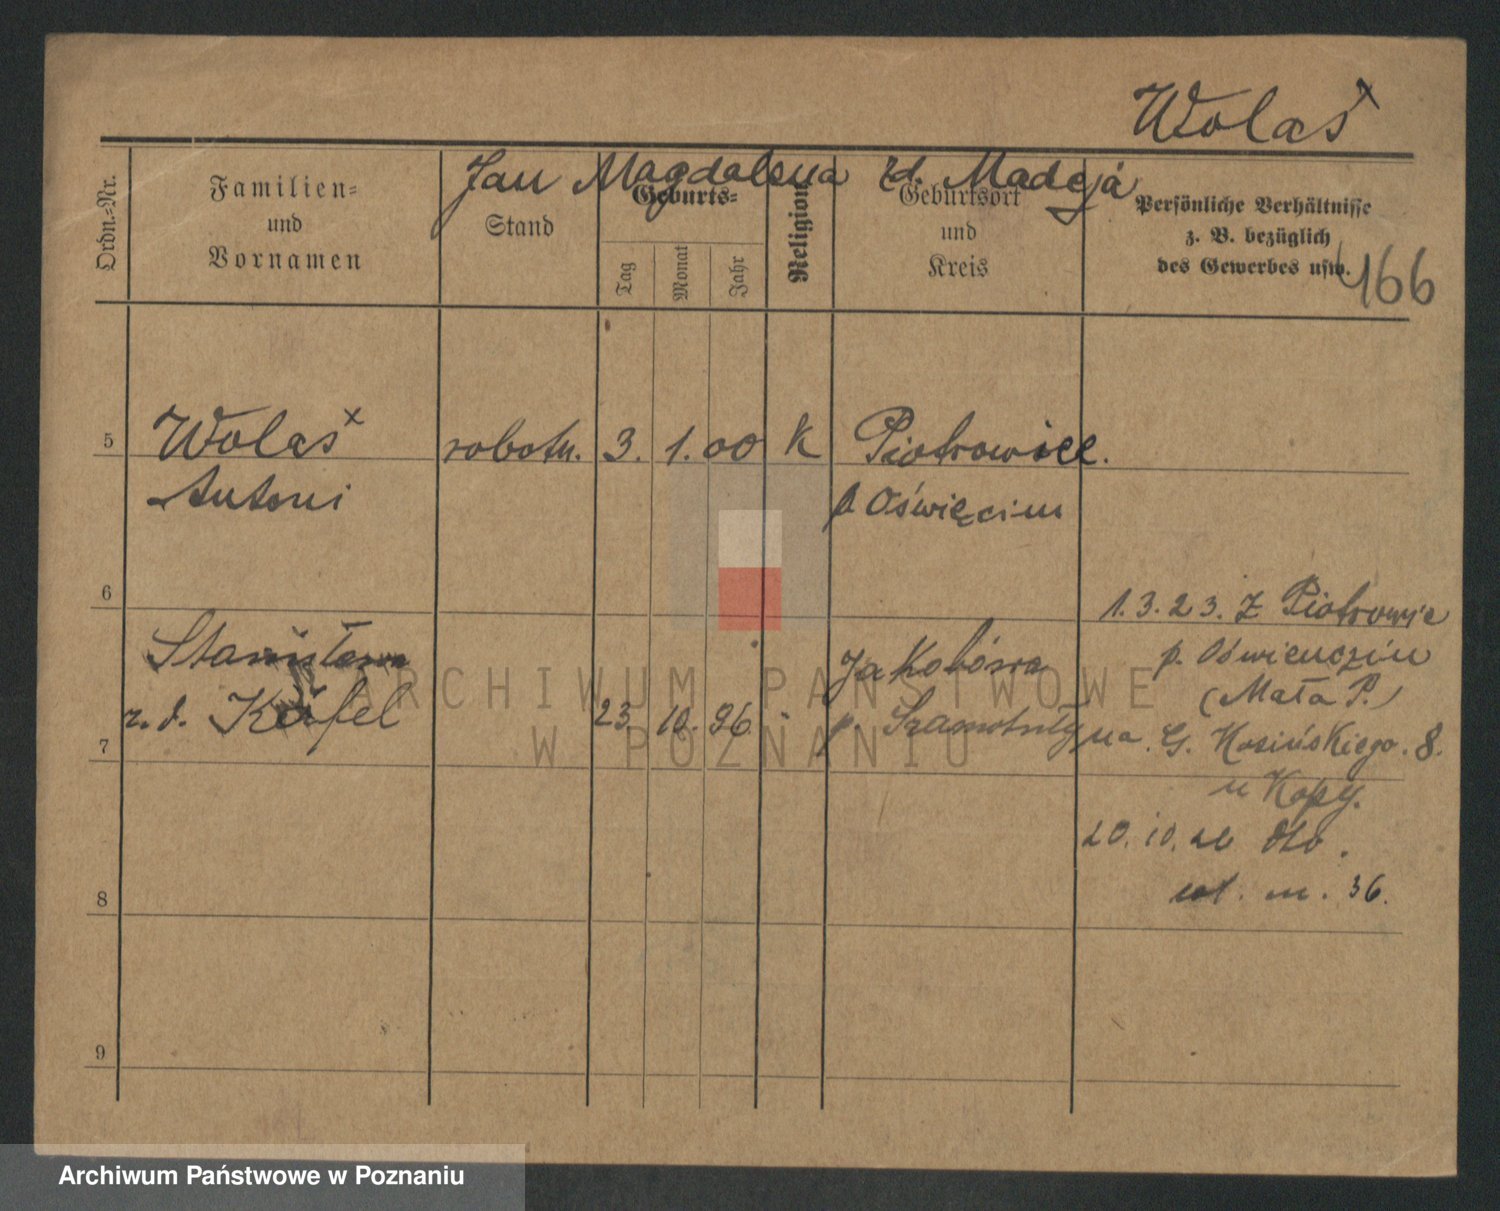 Wolaś
Jan Magdalena zd. Madeja
Ordn.-Nr.
Familien-
und
Vornamen
Stand
Geburts-
Tag
Monat
Jahr
Religion
Geburtsort
und
Kreis
Persönliche Verhältnisse
z. B. bezüglich
des Gewerbes usw.
166
5 Wolaś robotn. 3. 1. 00 K Piotrowice.
Antoni p Oświęcim
6
1. 3. 23. Z Piotrowic
Stanisława Jakobówo p. Oświenczim
(Mała P.)
z. d. 23. 10. 96. p. Szamotuły na G. Kosińskiego. 8.
7
u Kopy.
20. 10.
m. 36.
8
9
ARCHIWUM PAŃSTWOWE
W POZNANIU
Archiwum Państwowe w Poznaniu